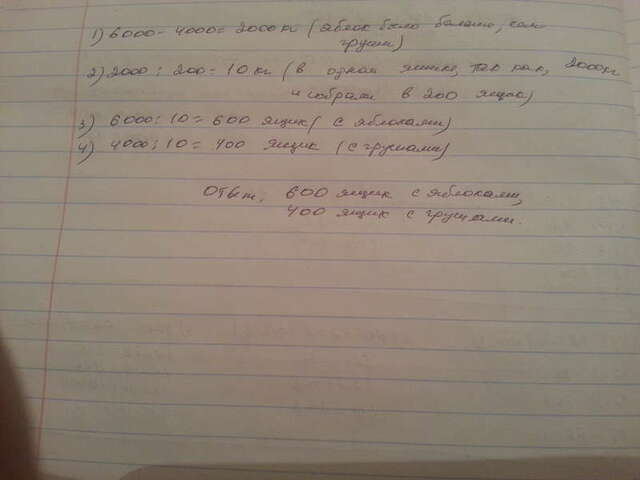 1) 6000 - 4000 = 2000 кг (яблок было больше, чем
груш)
2) 2000 : 200 = 10 кг (в одном ящике, так как, 2000кг
и собрали в 200 ящик)
3) 6000 : 10 = 600 ящик (с яблоками)
4) 4000 : 10 = 400 ящик (с грушами)
Ответ: 600 ящик с яблоками,
400 ящик с грушами.